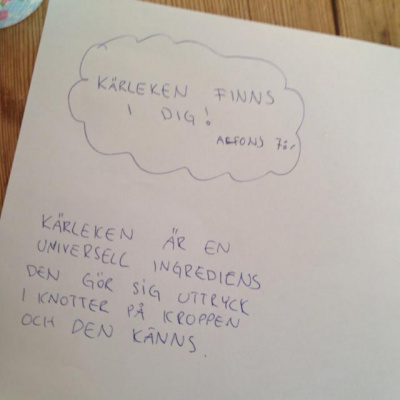 KÄRLEKEN FINNS
I DIG!
ALFONS 7år
KÄRLEKEN ÄR EN
UNIVERSELL INGREDIENS
DEN GÖR SIG UTTRYCK
I KNOTTER PÅ KROPPEN
OCH DEN KÄNNS.